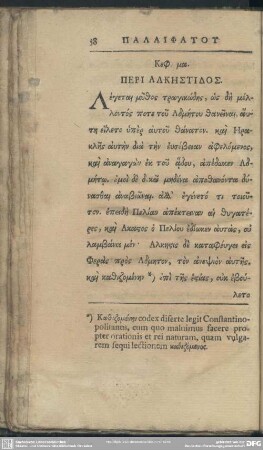 58 ΠΑΛΑΙΦΑΤΟΥ
Κεφ. μα.
ΠΕΡΙ ΑΛΚΗΣΤΙΔΟΣ.
Λέγεται μῦθος τραγικώδης, ὡς δὴ μέλ-
λοντός ποτε τοῦ Ἀδμήτου θανεῖναι, αὕ-
τη εἵλετο ὑπὲρ αὐτοῦ θάνατον. καὶ Ἡρα-
κλῆς αὐτὴν διὰ τὴν εὐσέβειαν ἀφελόμενος,
καὶ ἀναγαγὼν ἐκ τοῦ ᾅδου, ἀπέδωκεν Ἀδ-
μήτῳ. ἐμοὶ δὲ δοκεῖ μηδένα ἀποθανόντα δύ-
νασθαι ἀναβιῶναι. ἀλλ' ἐγένετό τι τοιοῦ-
τον. ἐπειδὴ Πελίαν ἀπέκτειναν αἱ θυγατέ-
ρες, καὶ Ἄκαστος ὁ Πελίου ἐδίωκεν αὐτὰς,
λαμβάνει μέν· Ἄλκηστις δὲ καταφεύγει εἰς
Φερὰς πρὸς Ἄδμητον, τὸν ἀνεψιὸν αὐτῆς,
καὶ καθεζομένην *) ἐπὶ τῆς ἑστίας, οὐκ ἐβού-
λετο
*) Καθεζομένην codex diserte legit Constantino-
politanus, cum quo maluimus facere pro-
pter orationis et rei naturam, quam vulga-
rem sequi lectionem καθεζόμενος.